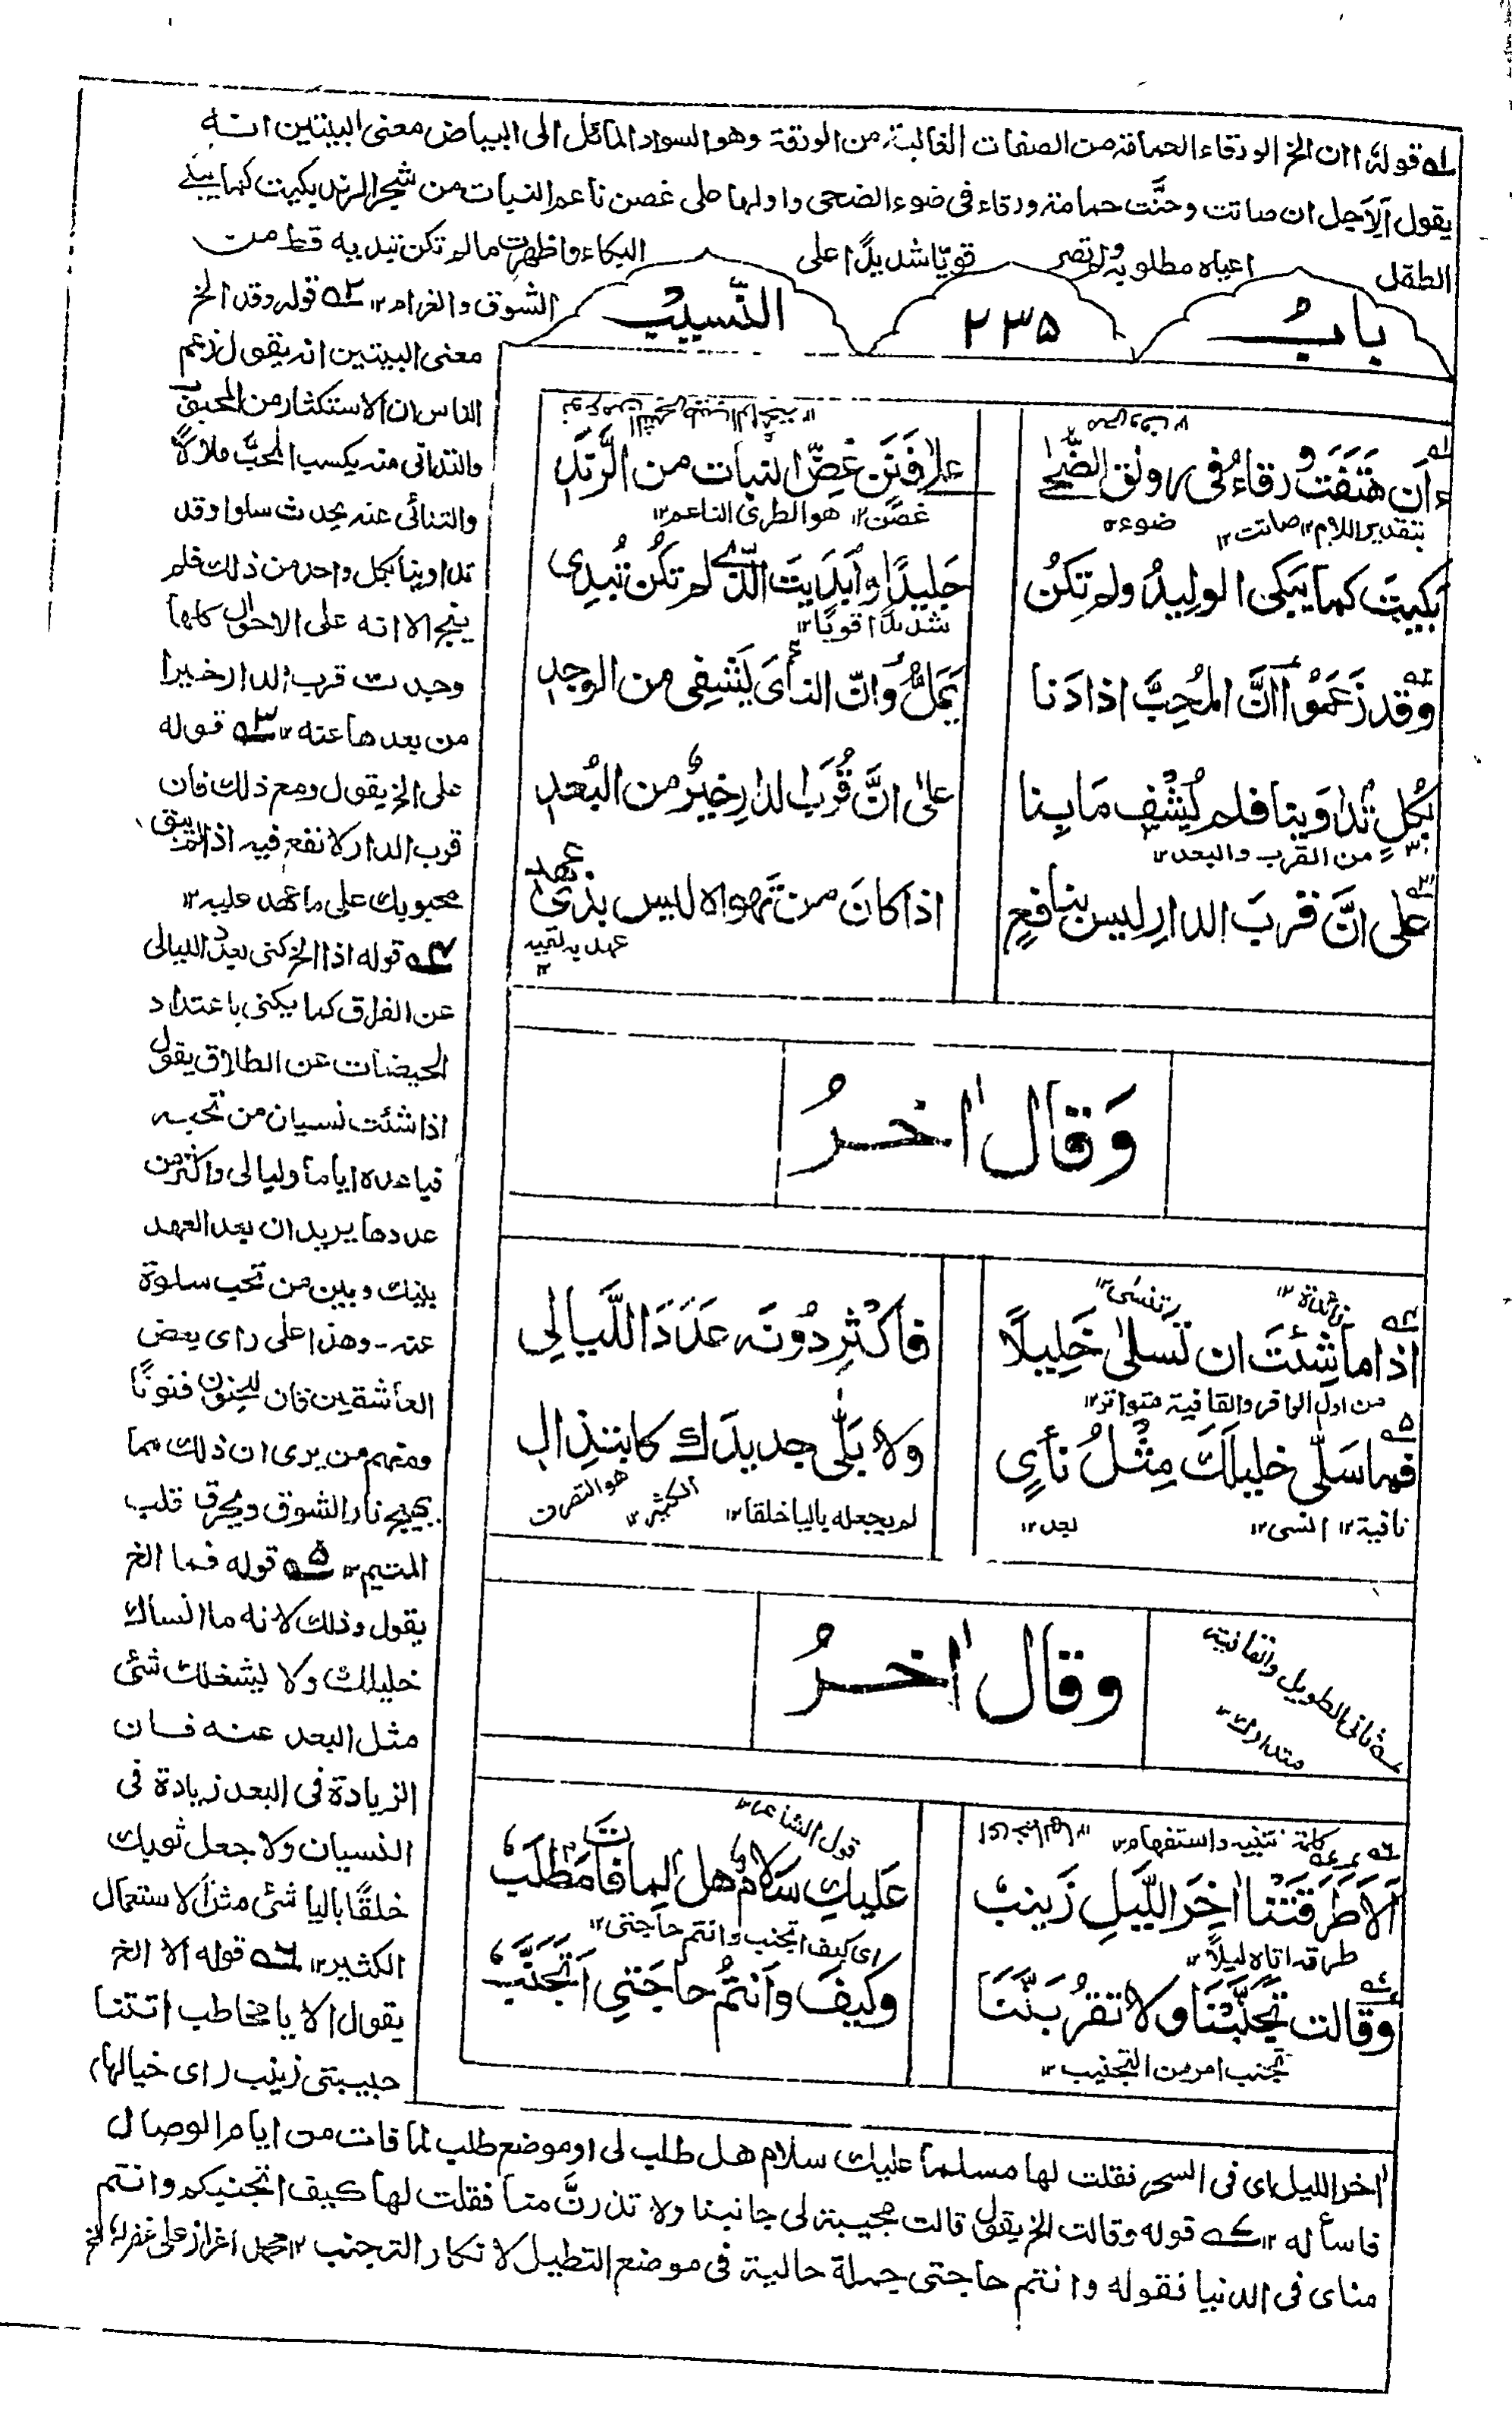 له قوله أ ان الخ الورقاء الحمامة من الصفات الغالبة من الورقة وهو السواد المائل الى البياض معنى البيتين انه
يقول ألاجل ان صاتت وحنَّت حمامة ورقاء فى ضوء الضحى واولها على غصن ناعم النبات من شجر الرند بكيت كما يبكے
الطفل اعياه مطلوبه ولم تصر قويًا شديدًا على البكاء واظهرت مالم تكن تبديه قط من
الشوق والغرام ١٢ ٢ه قوله وقد الخ
باب
٢٣٥
النَّسيبُ
معنى البيتين انه يقول زعم
الناس ان الاستكثار من المحبوب
والتدانى منه يكسب المحبَّ ملالاً
والتنائى عنه يحدث سلوا وقد
تداوينا بكل واحد من ذلك فلم
ينجع الا انه على الاحوال كلها
وجدت قرب الدار خيرا
من بعدها عنه ١٢ ٣ه قوله
على الخ يقول ومع ذلك فان
قرب الدار لا نفع فيه اذا لم يبق
محبوبك على ما عهد عليه ١٢
٤ه قوله اذا الخ كنى بعدد الليالى
عن الفراق كما يكنى باعتداد
الحيضات عن الطلاق يقول
اذا شئت نسيان من تحبه
فباعده اياما وليالى واكثر من
عددها يريد ان بعد العهد
بينك وبين من تحب سلوة
عنه - وهذا على راى بعض
العاشقين فان للجنون فنونًا
ومنهم من يرى ان ذلك مما
يهيج نار الشوق ويحرق قلب
المتيم ١٢ ٥ه قوله فما الخ
يقول وذلك لانه ما انساك
خليلك ولا يشغلك شئ
مثل البعد عنه فان
الزيادة فى البعد زيادة فى
النسيان ولا جعل ثوبك
خلقًا باليا شئ مثل الاستعمال
الكثير ١٢ ٦ه قوله الا الخ
يقول الا يا مخاطب اتتنا
حبيبتى زينب (اى خيالها)
ءَاَن هَتَفَت وَرقاءُ فى رونق الضُّحٰى
علٰى فَنَنٍ غَضِّ النبات من الرَّندِ
بتقدير اللام ١٢ صاتت ١٢ ضوء ١٢
غصن ١٢ هو الطرى الناعم ١٢
بَكيتَ كما يَبكى الوليدُ ولم تكنُ
جَليدًا وأبدَيتَ الذى لم تكُن تُبدِى
شديدًا قويًا ١٢
وقد زَعَمُوا انَّ المُحِبَّ اذا دَنا
يَمَلُّ وانّ النأىَ يَشفِى من الوجدِ
بكلٍ تداوَينا فلم يُشفِ ما بِنا
علٰى انَّ قُربَ الدارِ خيرٌ من البُعدِ
من القرب والبعد ١٢
على انَّ قربَ الدارِ ليس بنافعٍ
اذا كانَ من تهواه ليس بذى عهدِ
عهد به لقيه ١٢
وَقال اٰخرُ
زائدة ١٢ تنسٰى ١٢
اذا ما شِئتَ ان تَسلٰى خَلِيلًا
فاكثِر دُونَه عَدَدَ اللَّيالِى
من اول الوافر والقافية متواتر ١٢
فما سَلّى خليلَكَ مِثلُ نأىٍ
ولا بَلّٰى جديدَك كابتِذالِ
نافية ١٢ انسى ١٢ بعد ١٢
لم يجعله باليا خلقا ١٢ الكثير ١٢ هو التصرف
وقال اٰخرُ
ثانى الطويل والقافية
متدارك ١٢
كلمة تنبيه واستفهام ١٢
قول الشاعر ١٢
اَلَا طَرَقَتنا اٰخِرَ اللَّيلِ زَينبُ
عَليكِ سَلامٌ هل لِما فاتَ مَطلَبُ
طرقه اتاه ليلاً ١٢
اى كيف اتجنب وانتم حاجتى ١٢
وقالت تجنَّبنا ولا تقرُبَنَّنا
وكيفَ وانتُم حاجَتِى اَتَجَنَّبُ
تجنب امر من التجنيب ١٢
اٰخر الليل اى فى السحر فقلت لها مسلماً عليك سلام هل طلب لى او موضع طلب لما فات من ايام الوصال
فاسأله ١٢ ٧ه قوله وقالت الخ يقول قالت مجيبة لى جانبنا ولا تدن منا فقلت لها كيف اتجنبكم وانتم
مناى فى الدنيا فقوله وانتم حاجتى جملة حالية فى موضع التعليل لانكار التجنب ١٢ محمد اعزاز على غفر له